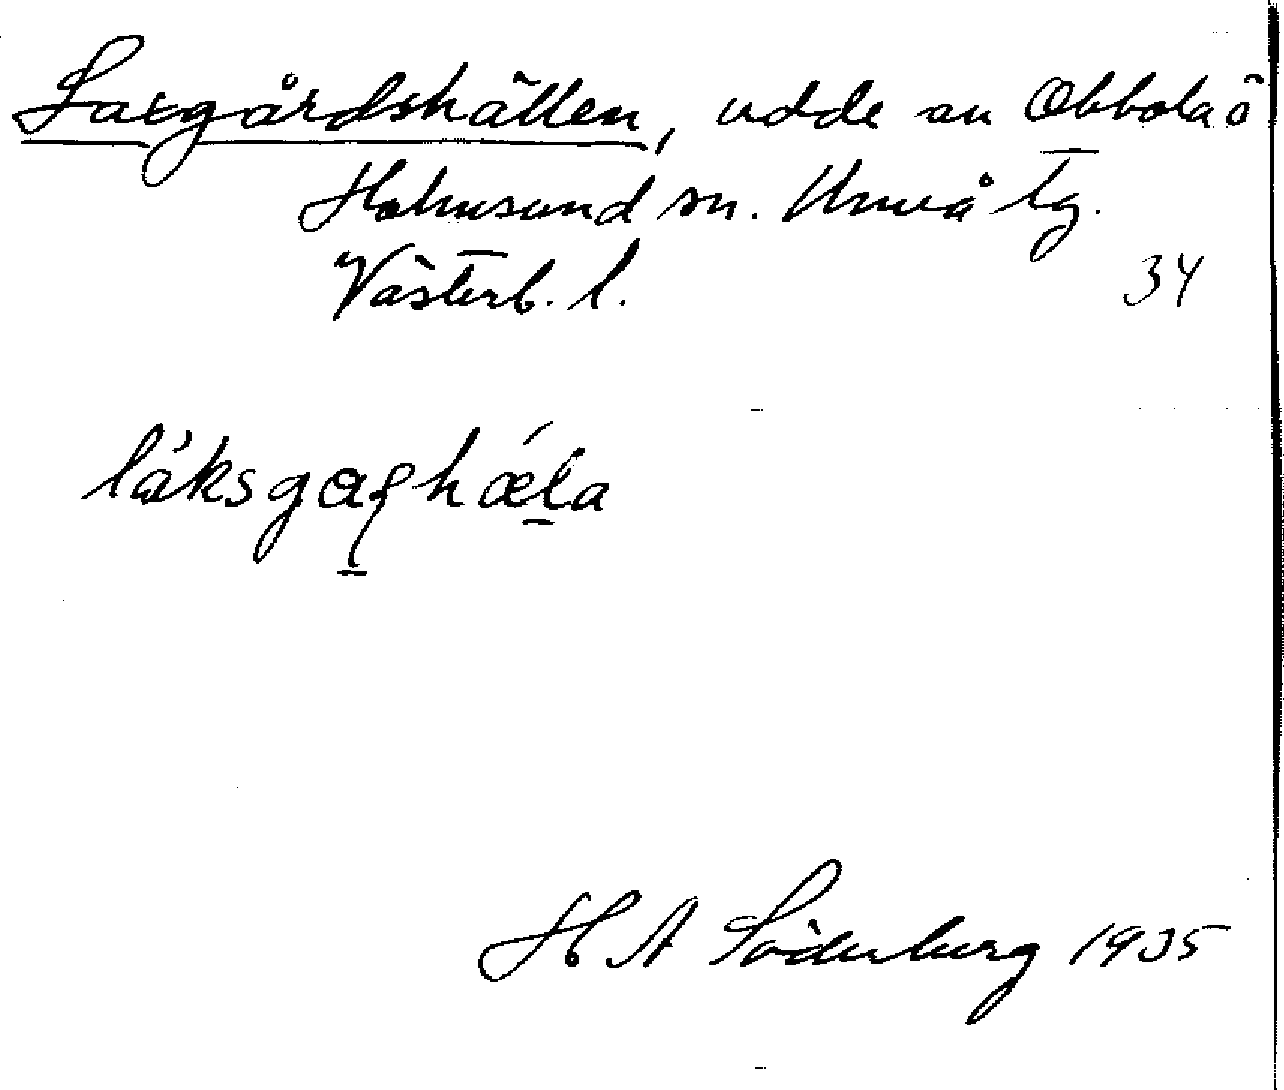 Laxgårdshällen, udde av Obbolaö
Holmsund sn. Umeå tg.
Västerb. l.
34
láksgaꞎhǽla
H A Söderberg 1935